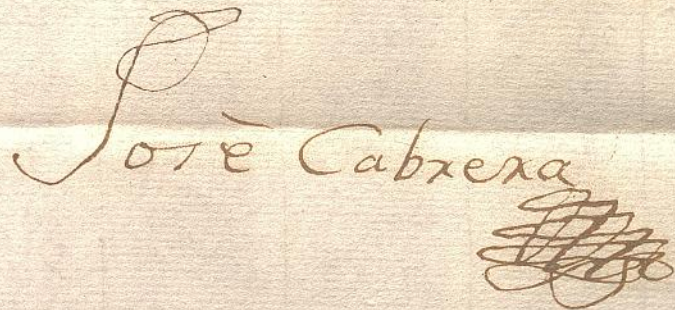 Josè Cabrera